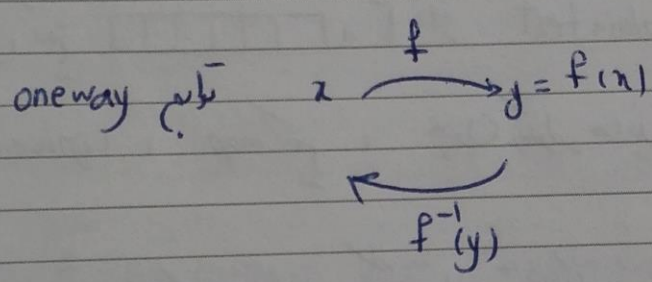 f
oneway تابع x y = f(x)
f⁻¹(y)